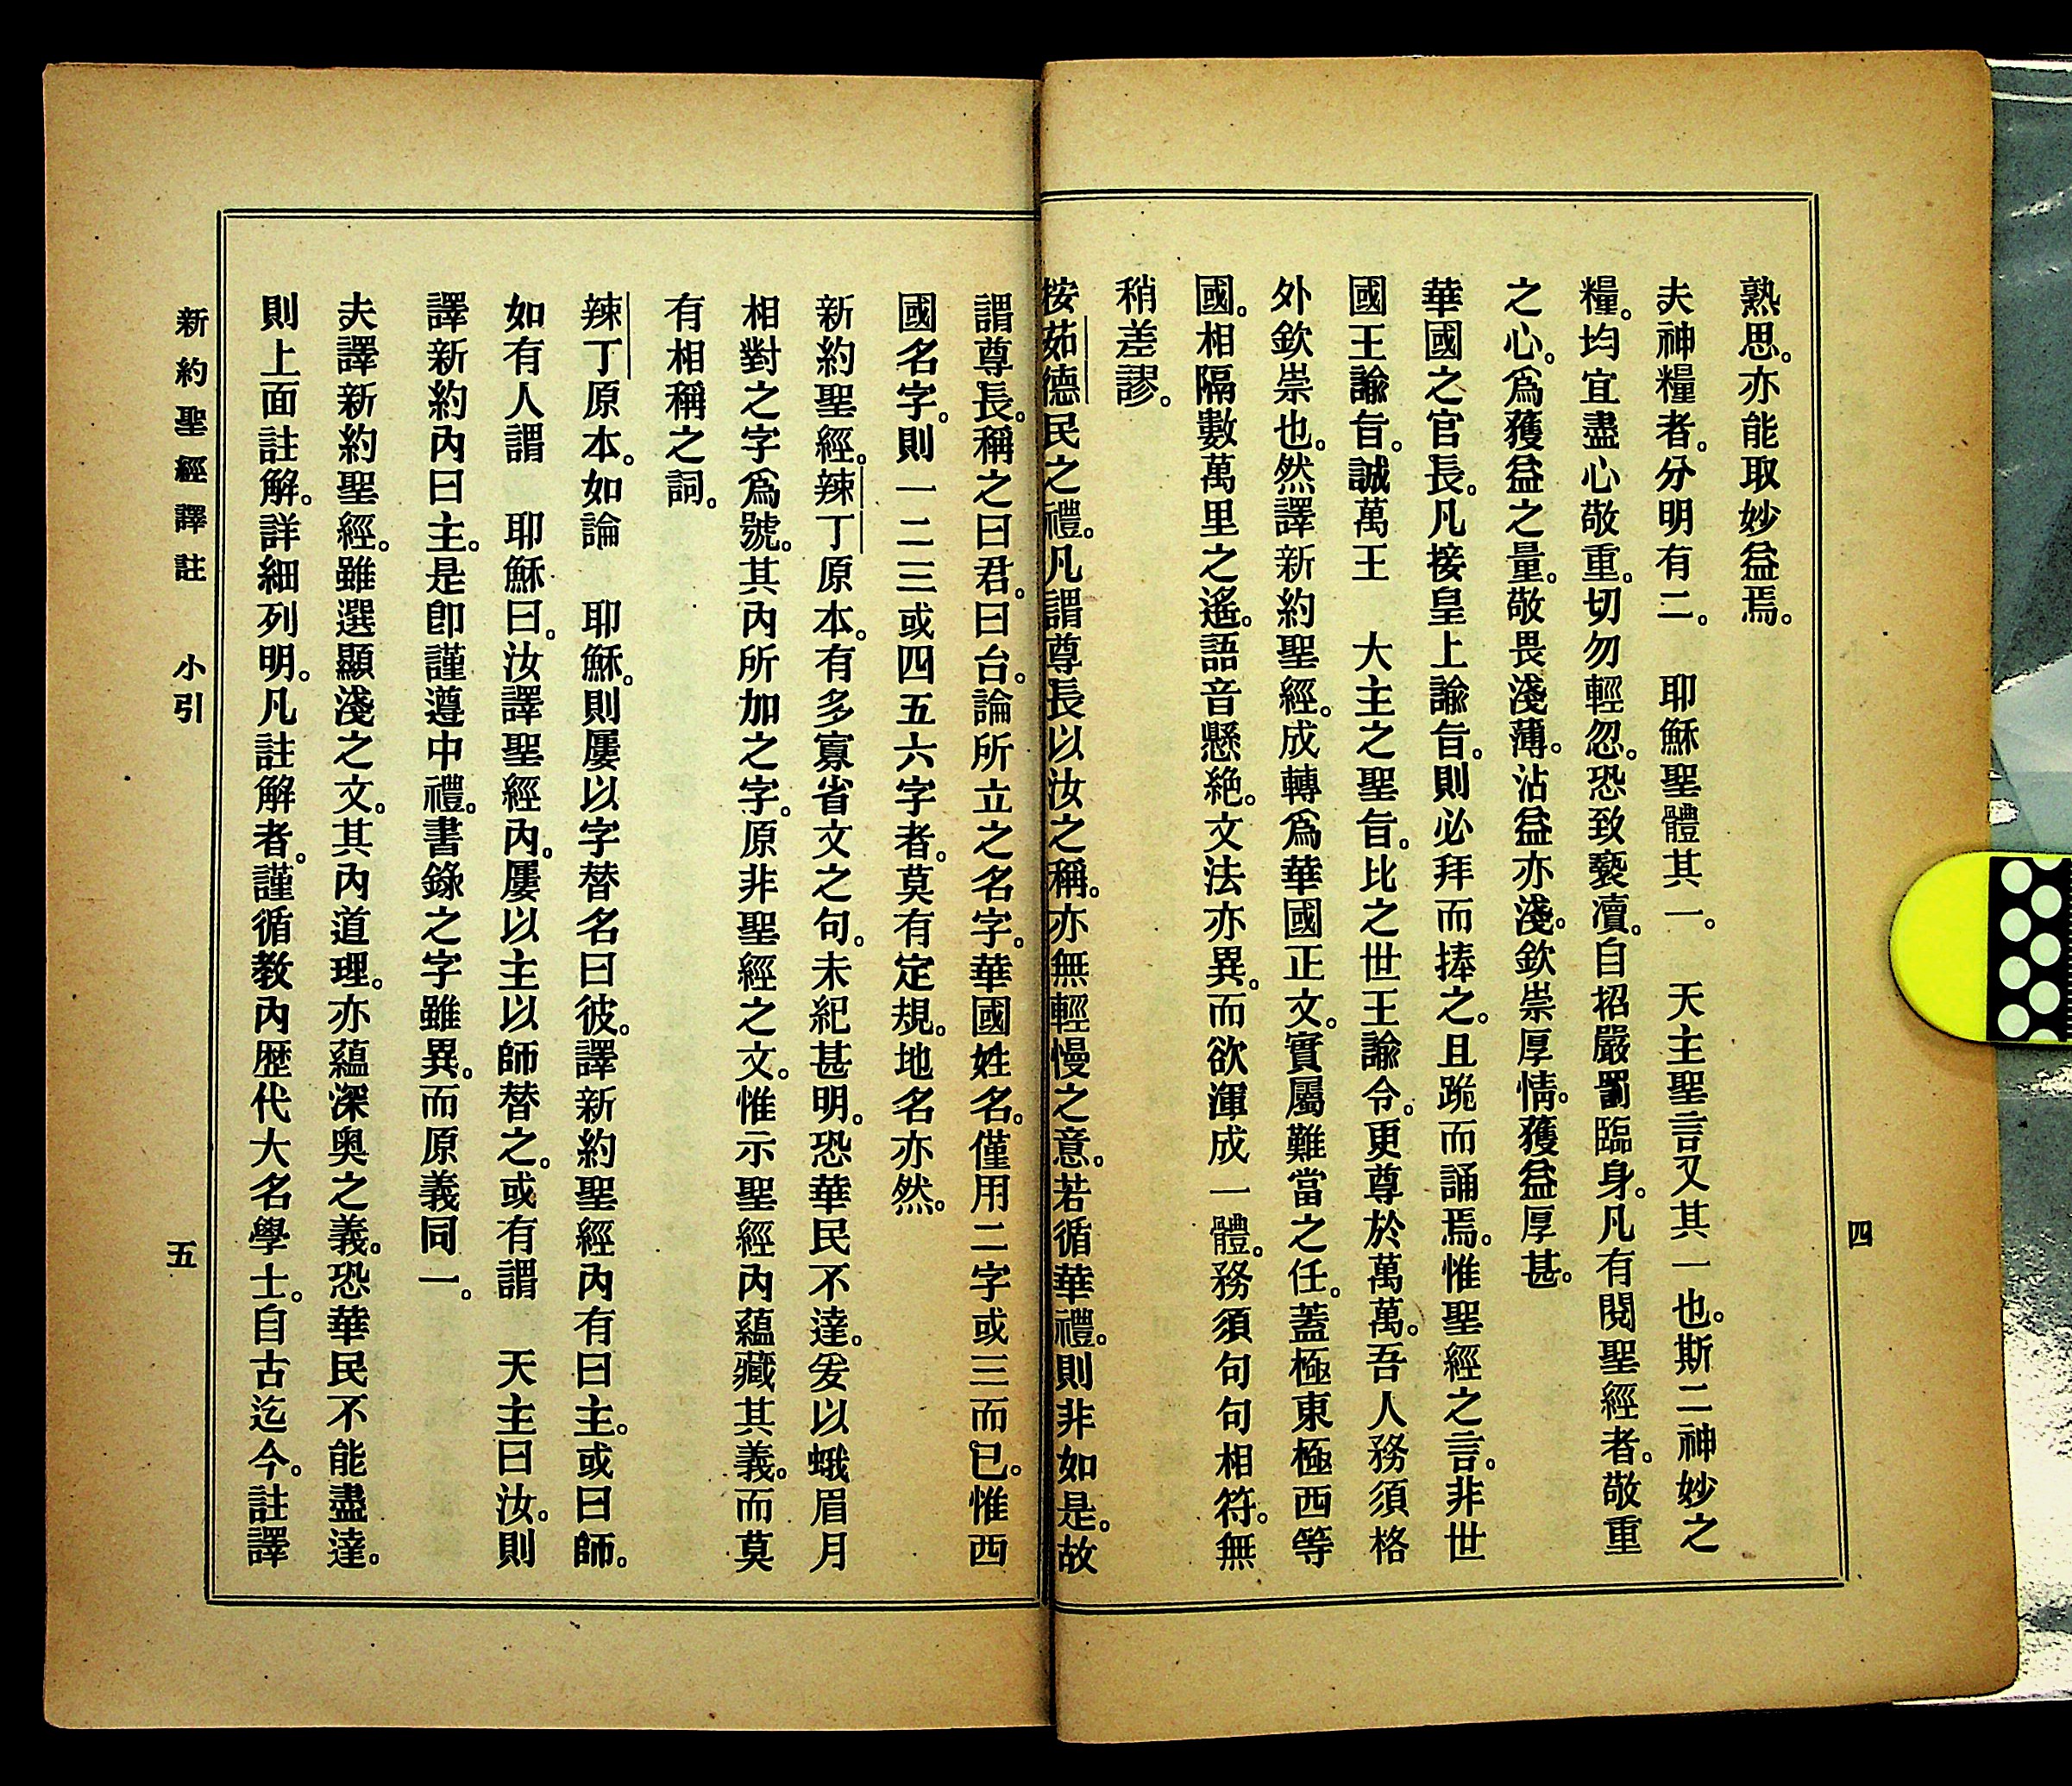 熟思。亦能取妙益焉。
夫神糧者。分明有二。　耶穌聖體其一。　天主聖言又其一也。斯二神妙之
糧。均宜盡心敬重。切勿輕忽。恐致褻瀆。自招嚴罰臨身。凡有閱聖經者。敬重
之心。爲獲益之量。敬畏淺薄。沾益亦淺。欽崇厚情。獲益厚甚。
華國之官長。凡接皇上諭旨。則必拜而捧之。且跪而誦焉。惟聖經之言。非世
國王諭旨。誠萬王　大主之聖旨。比之世王諭令。更尊於萬萬。吾人務須格
外欽崇也。然譯新約聖經。成轉爲華國正文。實屬難當之任。蓋極東極西等
國。相隔數萬里之遙。語音懸絶。文法亦異。而欲渾成一體。務須句句相符。無
稍差謬。
按茹德民之禮。凡謂尊長以汝之稱。亦無輕慢之意。若循華禮。則非如是。故
四
謂尊長。稱之曰君。曰台。論所立之名字。華國姓名。僅用二字或三而已。惟西
國名字。則一二三或四五六字者。莫有定規。地名亦然。
新約聖經。辣丁原本。有多寡省文之句。未紀甚明。恐華民不達。爰以蛾眉月
相對之字爲號。其內所加之字。原非聖經之文。惟示聖經內蘊藏其義。而莫
有相稱之詞。
辣丁原本。如論　耶穌。則屢以字替名曰彼。譯新約聖經內有曰主。或曰師。
如有人謂　耶穌曰。汝譯聖經內。屢以主以師替之。或有謂　天主曰汝。則
譯新約內曰主。是卽謹遵中禮。書錄之字雖異。而原義同一。
夫譯新約聖經。雖選顯淺之文。其內道理。亦蘊深奥之義。恐華民不能盡達。
則上面註解。詳細列明。凡註解者。謹循教內歴代大名學士。自古迄今。註譯
新約聖經譯註　小引
五